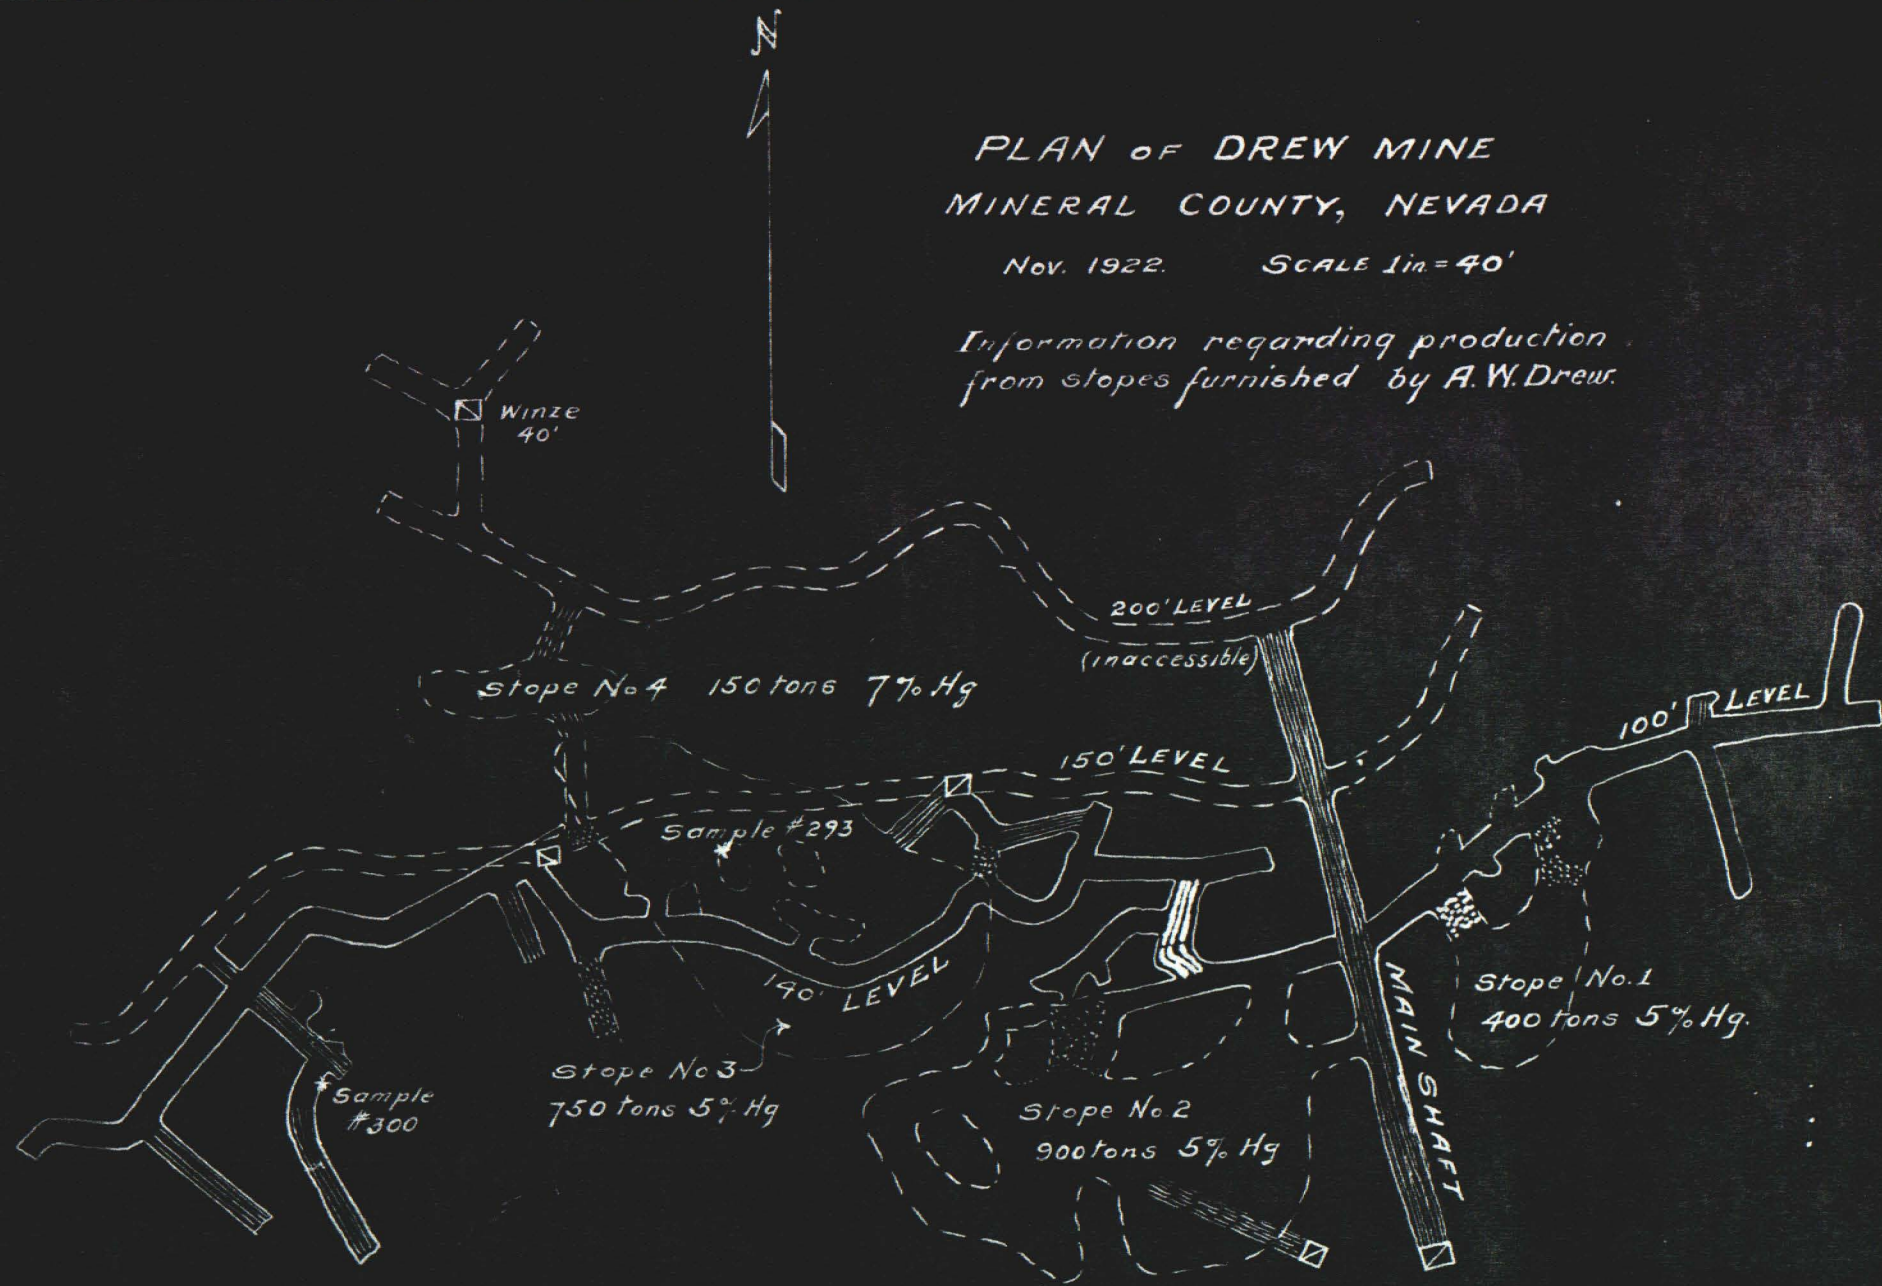 N
PLAN OF DREW MINE
MINERAL COUNTY, NEVADA
Nov. 1922. SCALE 1 in. = 40'
Information regarding production
from stopes furnished by A. W. Drew.
Winze
40'
200' LEVEL
(inaccessible)
Stope No 4 150 tons 7% Hg
100' LEVEL
150' LEVEL
Sample #293
140' LEVEL
MAIN SHAFT
Stope No. 1
400 tons 5% Hg.
Stope No 3
750 tons 5% Hg
Sample
#300
Stope No. 2
900 tons 5% Hg